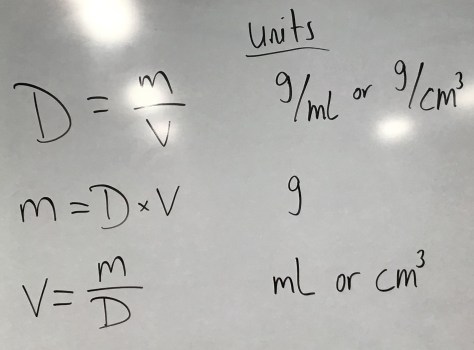 Units
D = m/V g/mL or g/cm³
m = D × V g
V = m/D mL or cm³